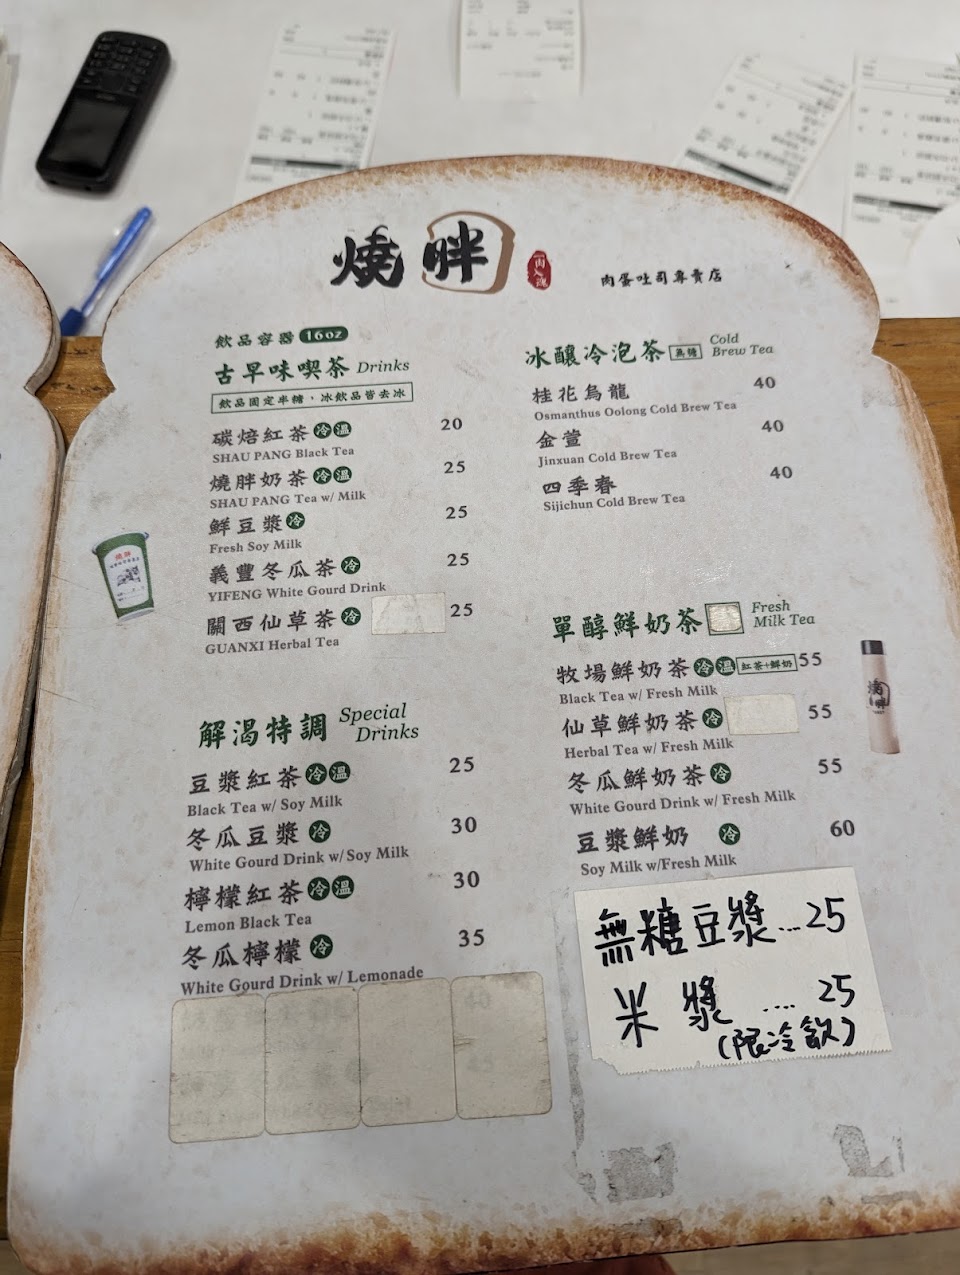 燒胖
肉蛋吐司專賣店
飲品容器 16oz
古早味喫茶 Drinks
飲品固定半糖,冰飲品皆去冰
碳焙紅茶 冷 溫 20
SHAU PANG Black Tea
燒胖奶茶 冷 溫 25
SHAU PANG Tea w/ Milk
鮮豆漿 冷 25
Fresh Soy Milk
義豐冬瓜茶 冷 25
YIFENG White Gourd Drink
關西仙草茶 冷 25
GUANXI Herbal Tea
解渴特調 Special
Drinks
豆漿紅茶 冷 溫 25
Black Tea w/ Soy Milk
冬瓜豆漿 冷 30
White Gourd Drink w/ Soy Milk
檸檬紅茶 冷 溫 30
Lemon Black Tea
冬瓜檸檬 冷 35
White Gourd Drink w/ Lemonade
冰釀冷泡茶 無糖 Cold
Brew Tea
桂花烏龍 40
Osmanthus Oolong Cold Brew Tea
金萱 40
Jinxuan Cold Brew Tea
四季春 40
Sijichun Cold Brew Tea
單醇鮮奶茶 Fresh
Milk Tea
牧場鮮奶茶 冷 溫 紅茶+鮮奶 55
Black Tea w/ Fresh Milk
仙草鮮奶茶 冷 55
Herbal Tea w/ Fresh Milk
冬瓜鮮奶茶 冷 55
White Gourd Drink w/ Fresh Milk
豆漿鮮奶 冷 60
Soy Milk w/Fresh Milk
無糖豆漿...25
米漿....25
(限冷飲)